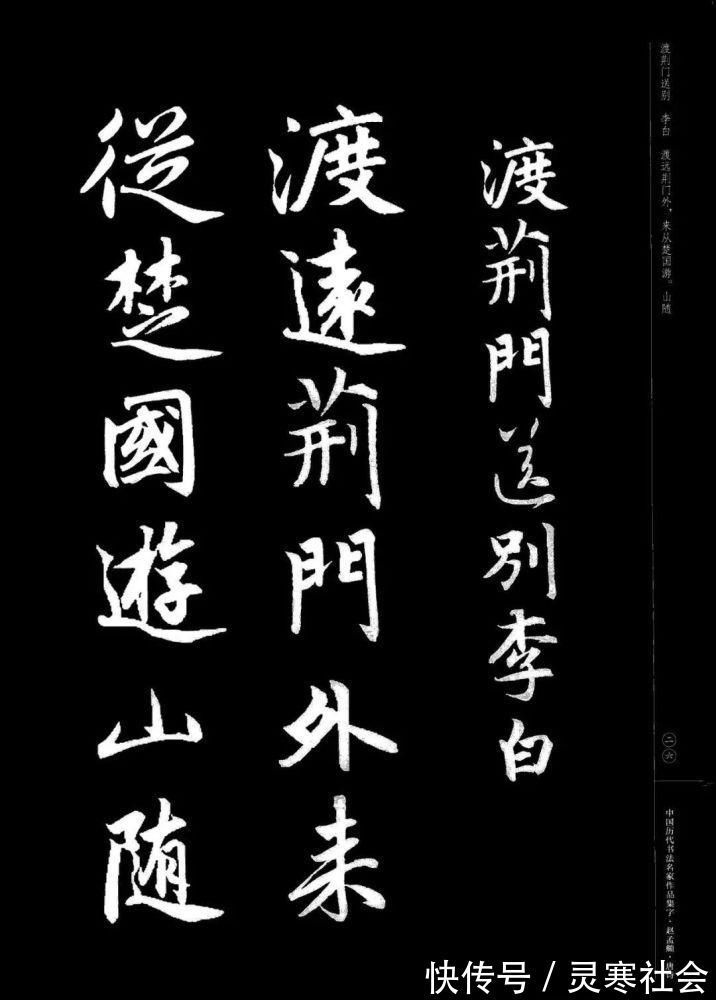 渡荆门送别　李白　渡远荆门外，来从楚国游。山随
渡荊門送別李白
渡遠荊門外来
従楚國遊山随
二六
中国历代书法名家作品集字·赵孟頫·唐
快传号/灵寒社会